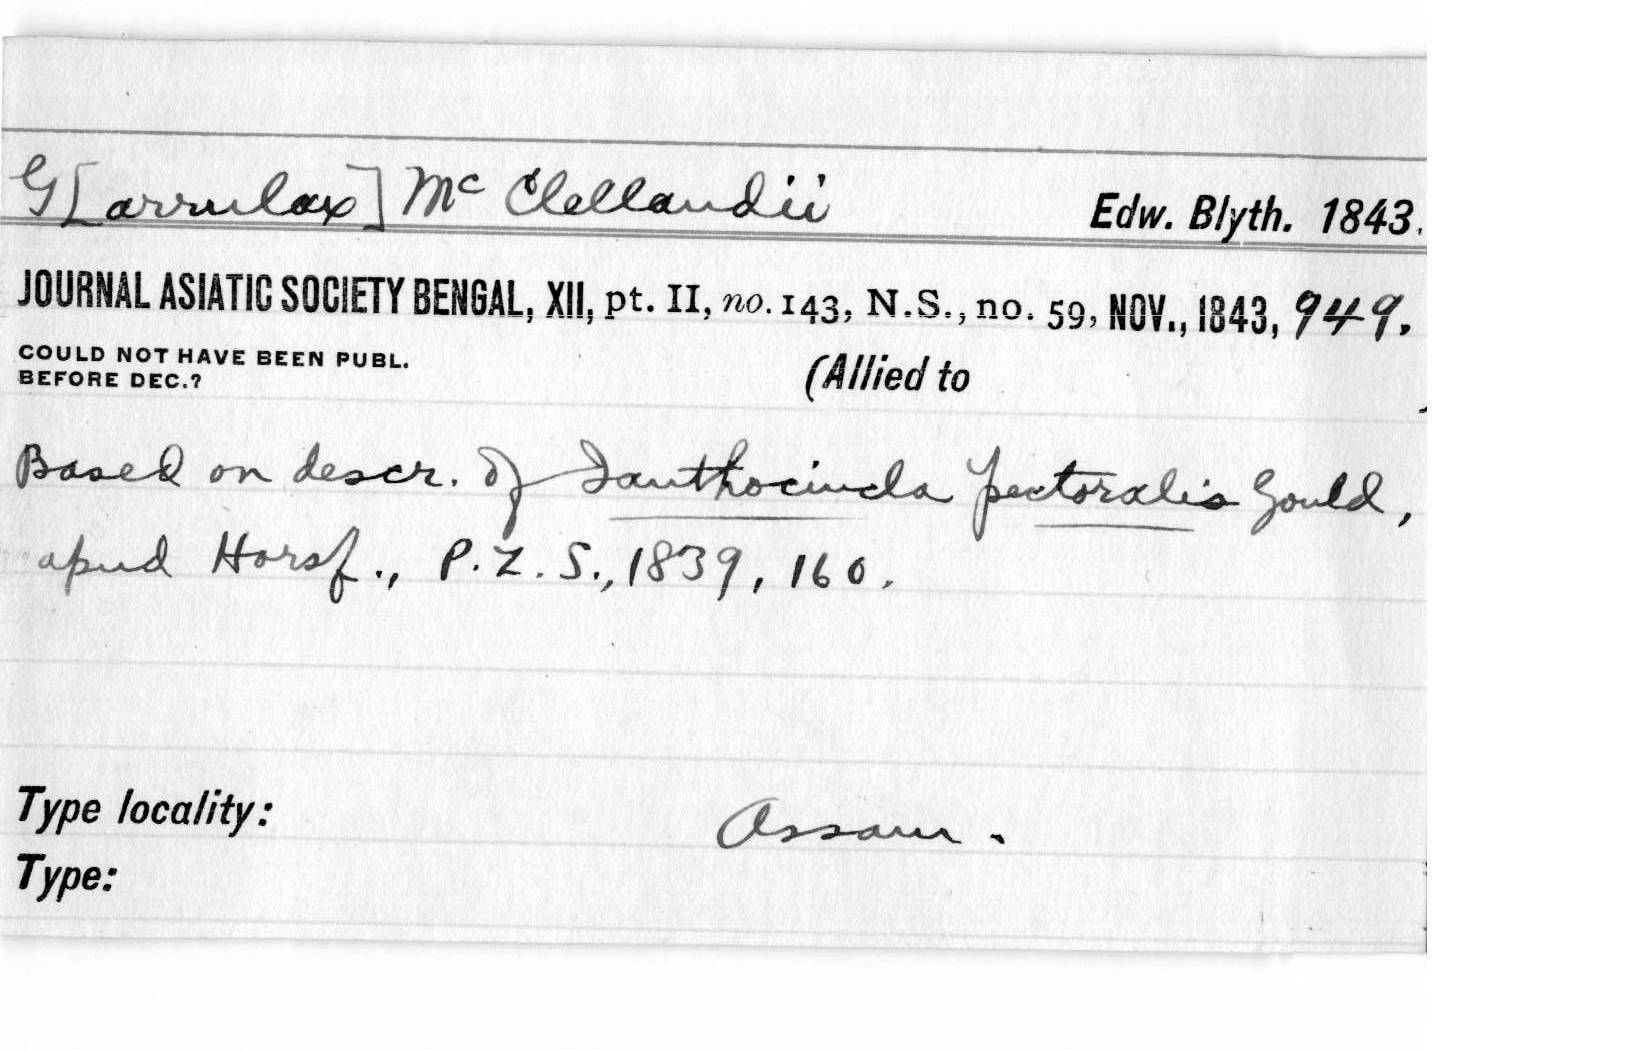 G[arrulax] Mc Clellandii Edw. Blyth. 1843.
JOURNAL ASIATIC SOCIETY BENGAL, XII, pt. II, no. 143, N.S., no. 59, NOV., 1843, 949.
COULD NOT HAVE BEEN PUBL.
BEFORE DEC.?
(Allied to
Based on descr. of Ianthocincla pectoralis Gould,
apud Horsf., P.Z.S., 1839, 160.
Type locality: Assam.
Type: